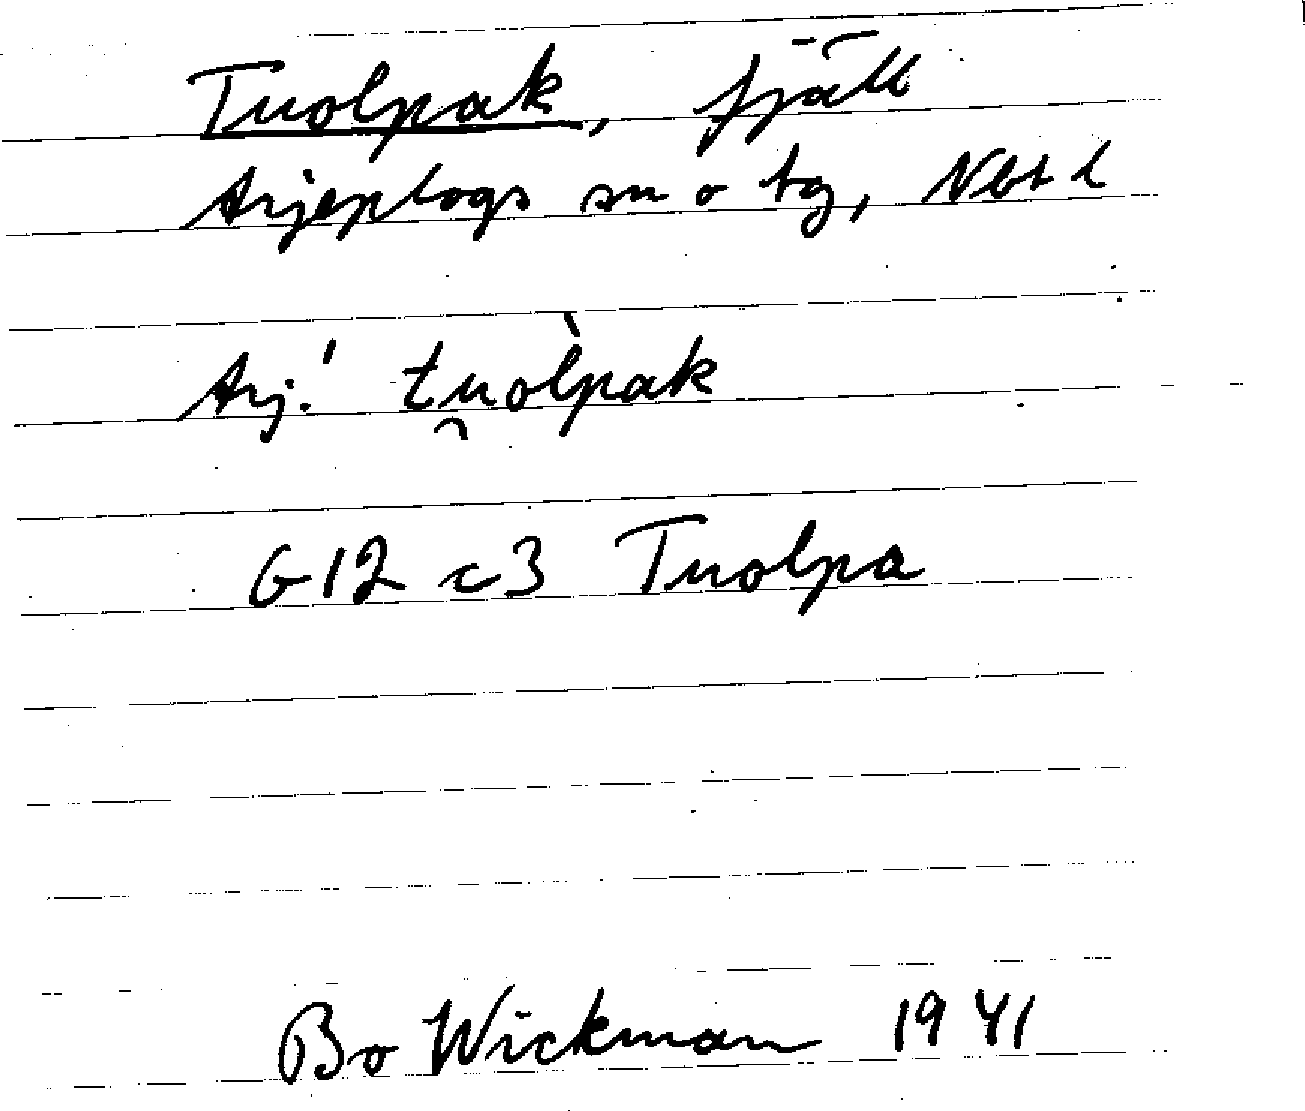 Tuolpak, fjäll
Arjeplogs sn o tg, Nbt l
Arj.! tu̯òlpak
G12 c3 Tuolpa
Bo Wickman 1941